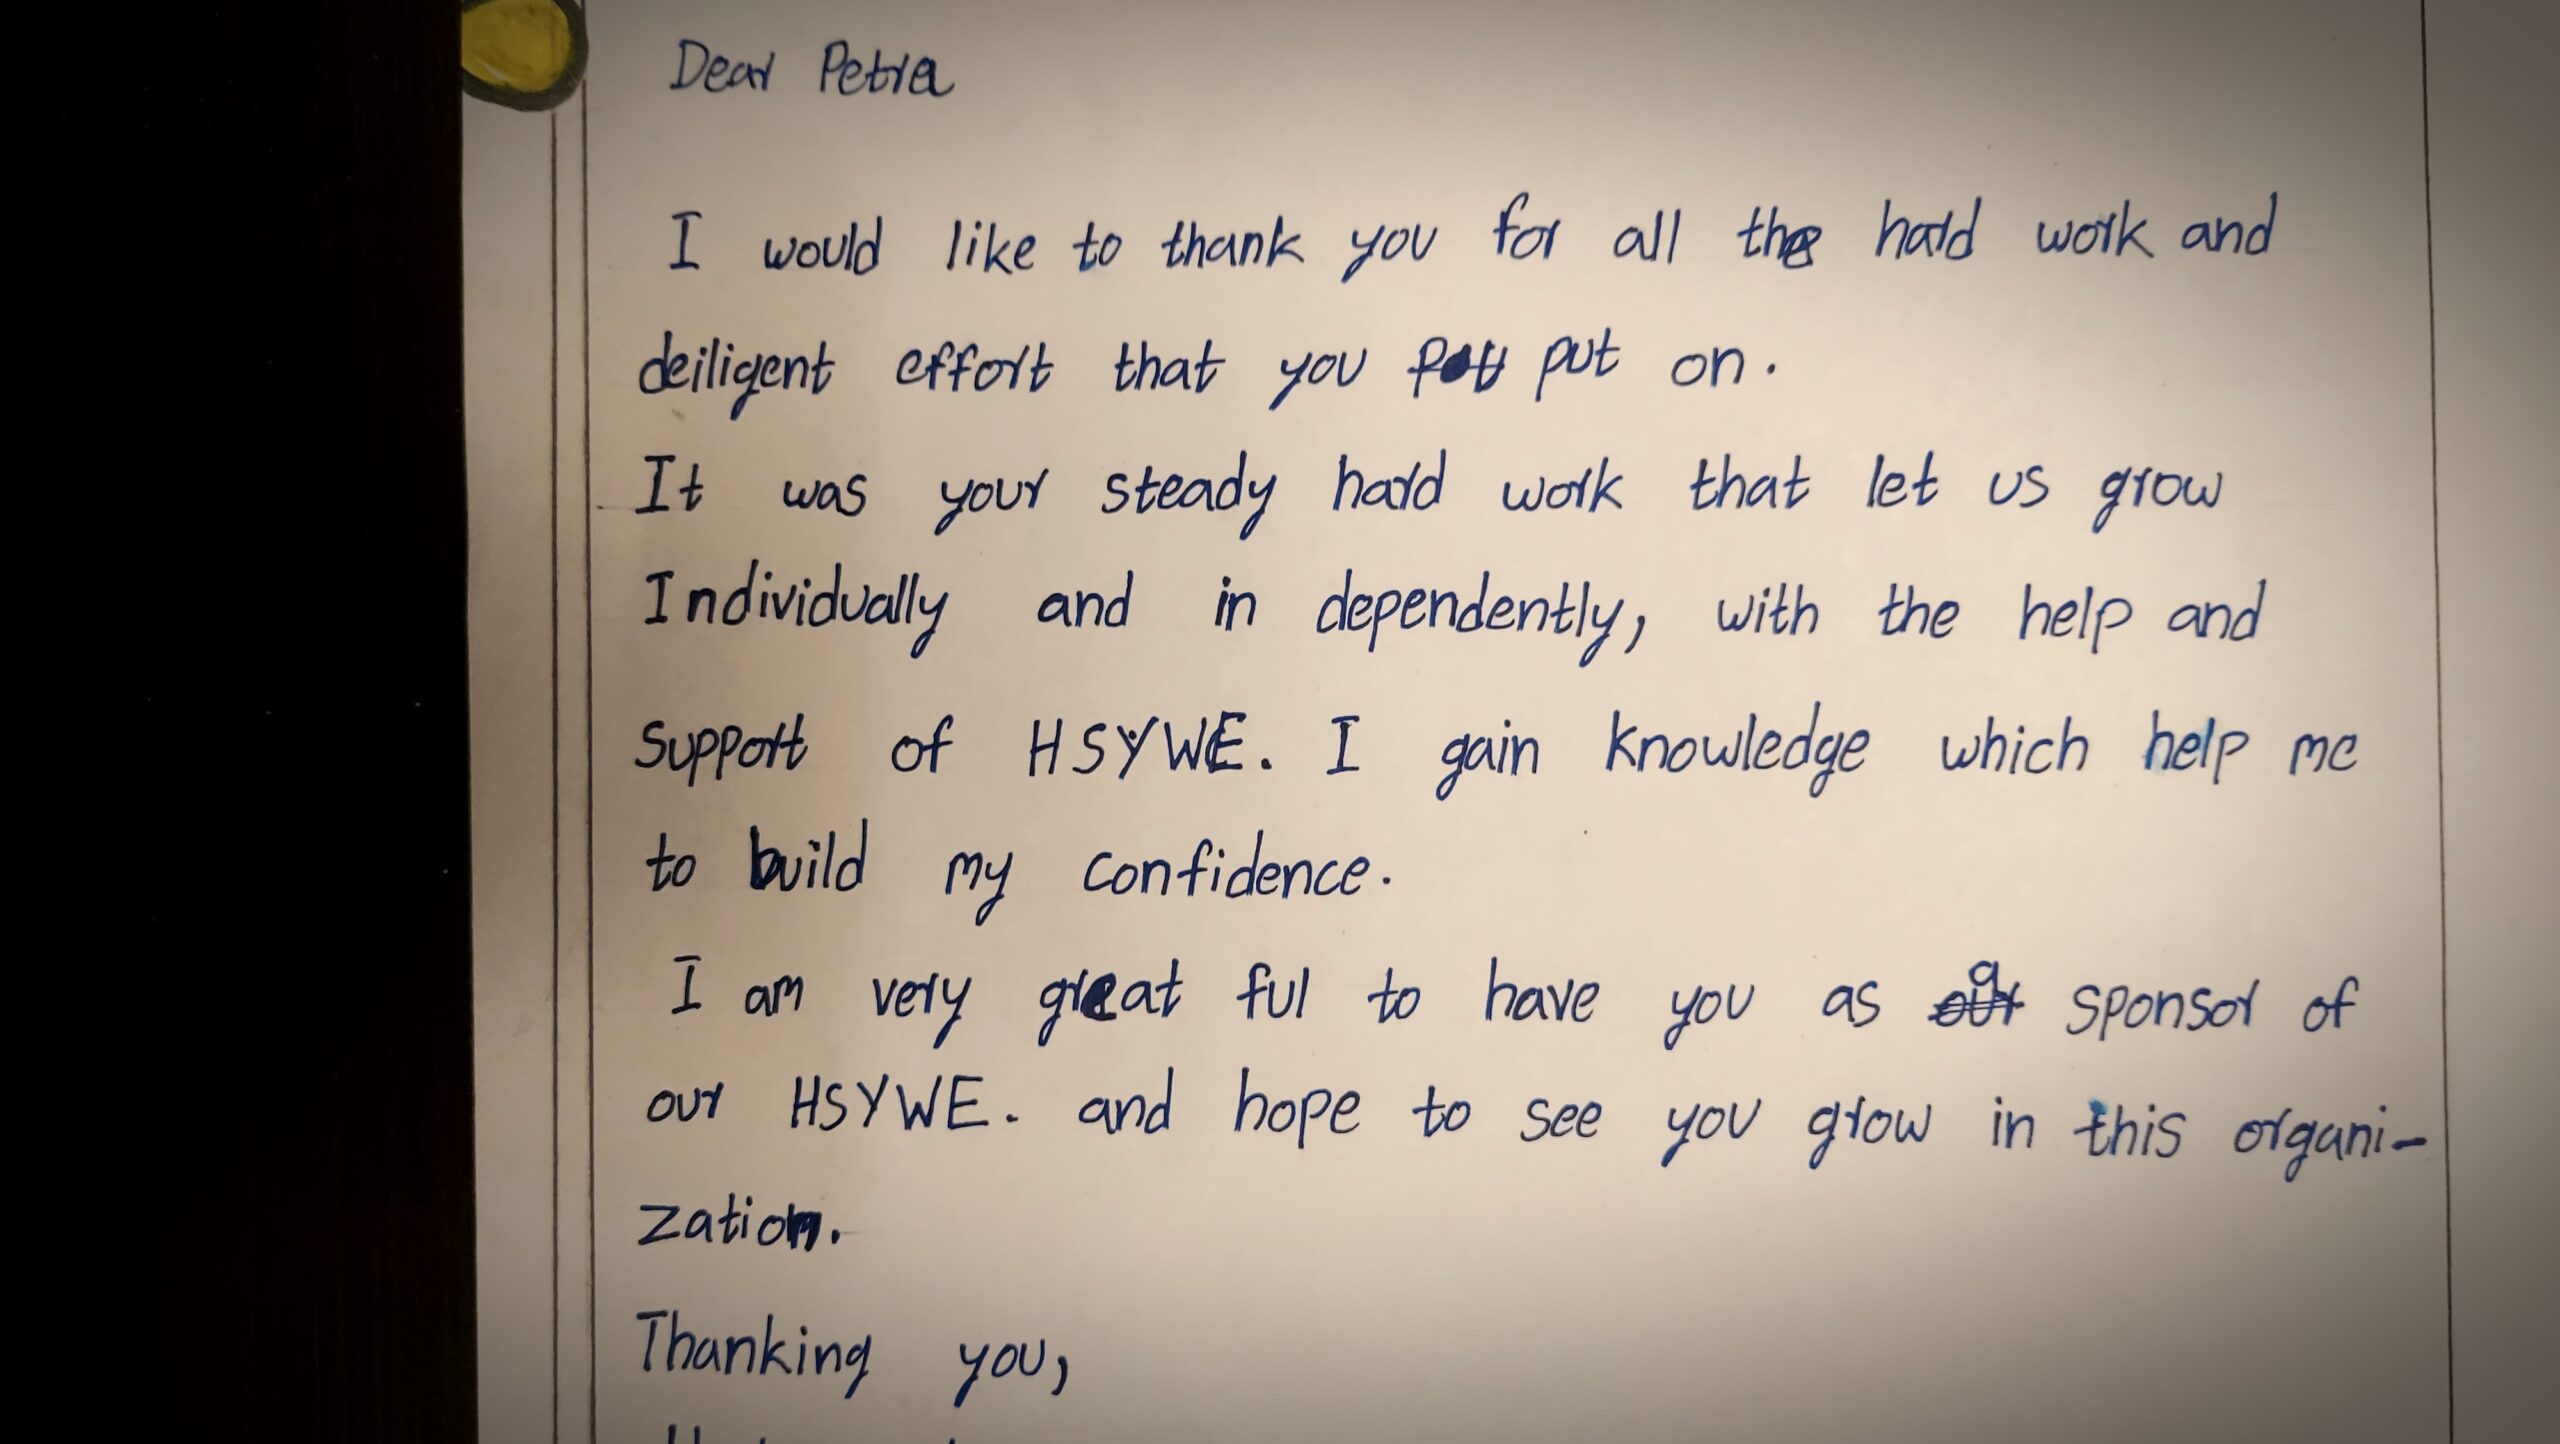 Dear Petra
I would like to thank you for all the hard work and
deiligent effort that you put on.
It was your steady hard work that let us grow
Individually and in dependently, with the help and
Support of HSYWE. I gain knowledge which help me
to build my confidence.
I am very great ful to have you as a sponsor of
our HSYWE. and hope to see you grow in this organi-
zation.
Thanking you,